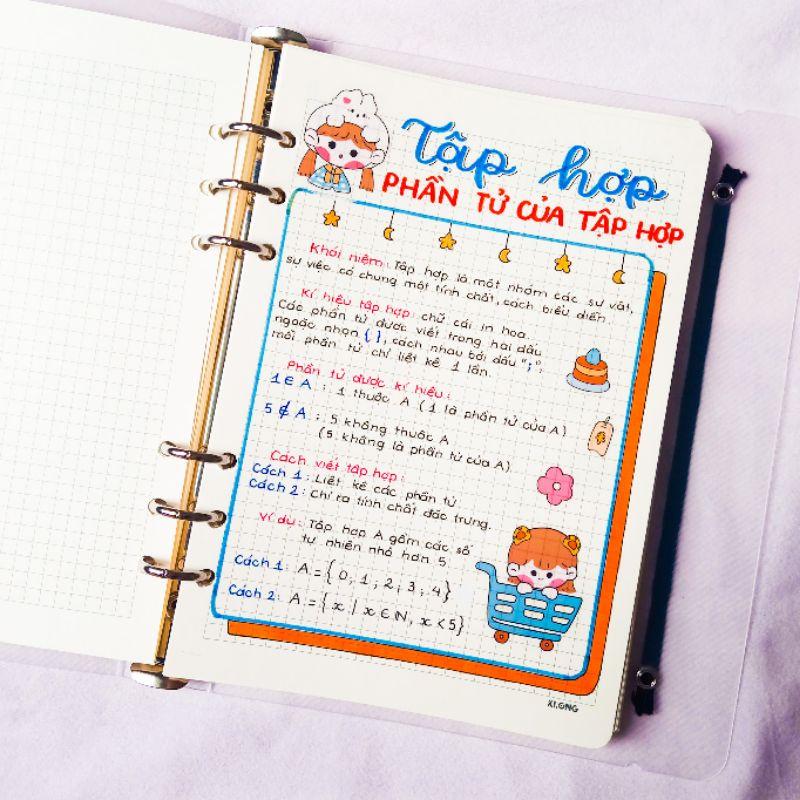 Tập hợp
PHẦN TỬ CỦA TẬP HỢP
Khái niệm: Tập hợp là một nhóm các sự vật,
sự việc có chung một tính chất, cách biểu diễn
Kí hiệu tập hợp chữ cái in hoa.
Các phần tử được viết trong hai dấu
ngoặc nhọn { }, cách nhau bởi dấu ";",
mỗi phần tử chỉ liệt kê 1 lần.
Phần tử được kí hiệu:
1 ∈ A : 1 thuộc A (1 là phần tử của A)
5 ∉ A : 5 không thuộc A
(5 không là phần tử của A)
Cách viết tập hợp:
Cách 1: Liệt kê các phần tử
Cách 2: Chỉ ra tính chất đặc trưng.
Ví dụ: Tập hợp A gồm các số
tự nhiên nhỏ hơn 5
Cách 1: A = { 0 ; 1 ; 2 ; 3 ; 4 }
Cách 2: A = { x | x ∈ N, x < 5 }
KLONG